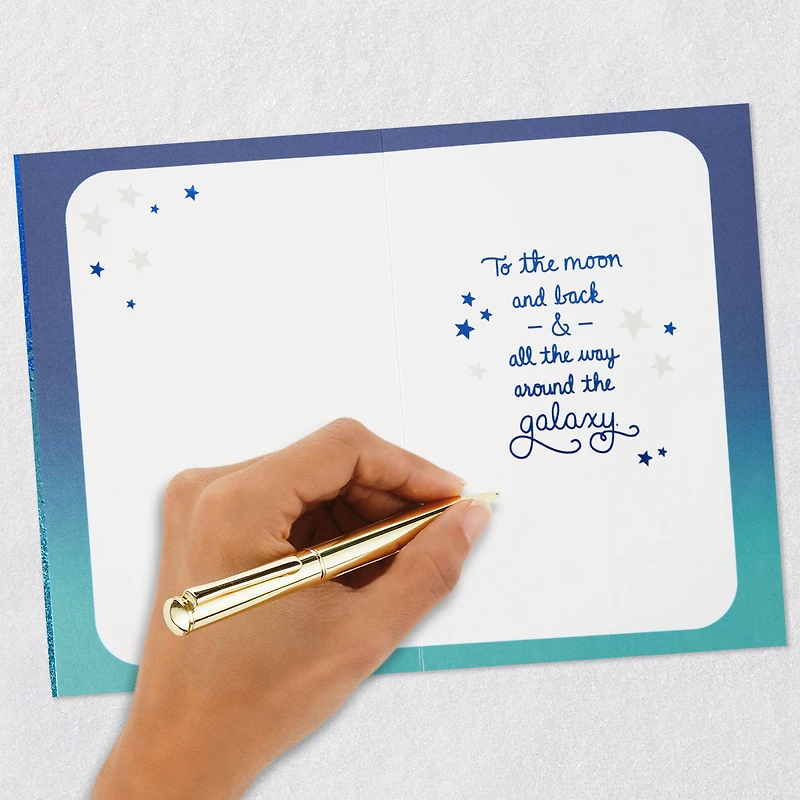 To the moon
and back
- & -
all the way
around the
galaxy.